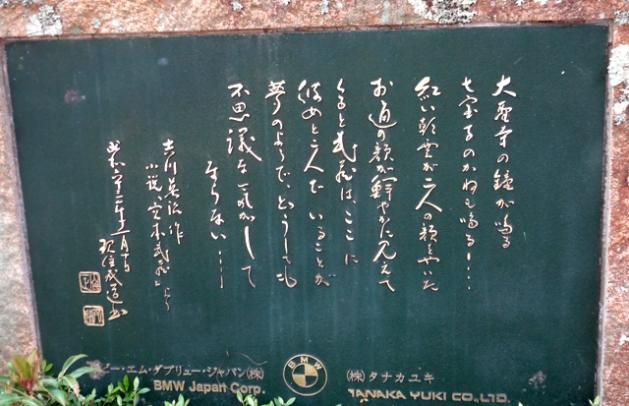 大聖寺の鐘が鳴る
七宝寺のかねも鳴る……
紅い朝雲が二人の顔をやいた
お通の顔が鮮やかに見えて
くると武蔵は、ここに
彼女と二人でいることが
夢のようで、どうしても
不思議な気がして
ならない……
吉川英治作
小説「宮本武蔵」より
昭和六十二年十一月
ビー・エム・ダブリュー・ジャパン(株)
BMW Japan Corp.
BMW
(株)タナカユキ
TANAKA YUKI CO., LTD.